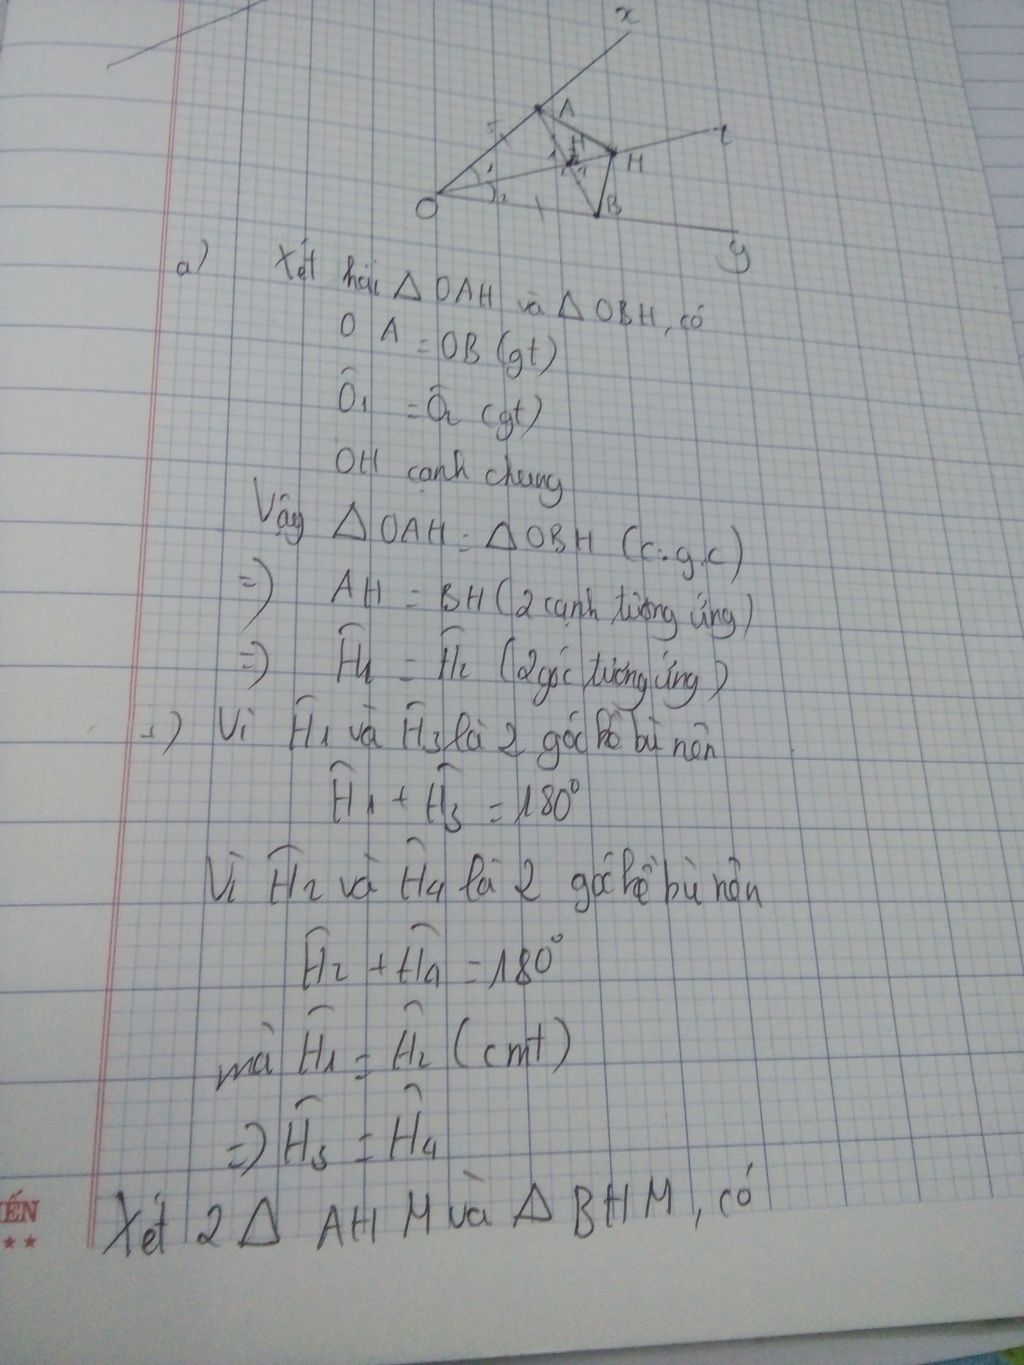 x
A
t
H
M
O
B
y
a) Xét hai △OAH và △OBH, có
OA = OB (gt)
Ô1 = Ô2 (gt)
OH cạnh chung
Vậy △OAH = △OBH (c.g.c)
=) AH = BH (2 cạnh tương ứng)
=) Ĥ1 = Ĥ2 (2 góc tương ứng)
Vì Ĥ1 và Ĥ3 là 2 góc kề bù nên
Ĥ1 + Ĥ3 = 180°
Vì Ĥ2 và Ĥ4 là 2 góc kề bù nên
Ĥ2 + Ĥ4 = 180°
mà Ĥ1 = Ĥ2 (cmt)
=) Ĥ3 = Ĥ4
Xét 2 △ AHM và △ BHM, có
ẾN